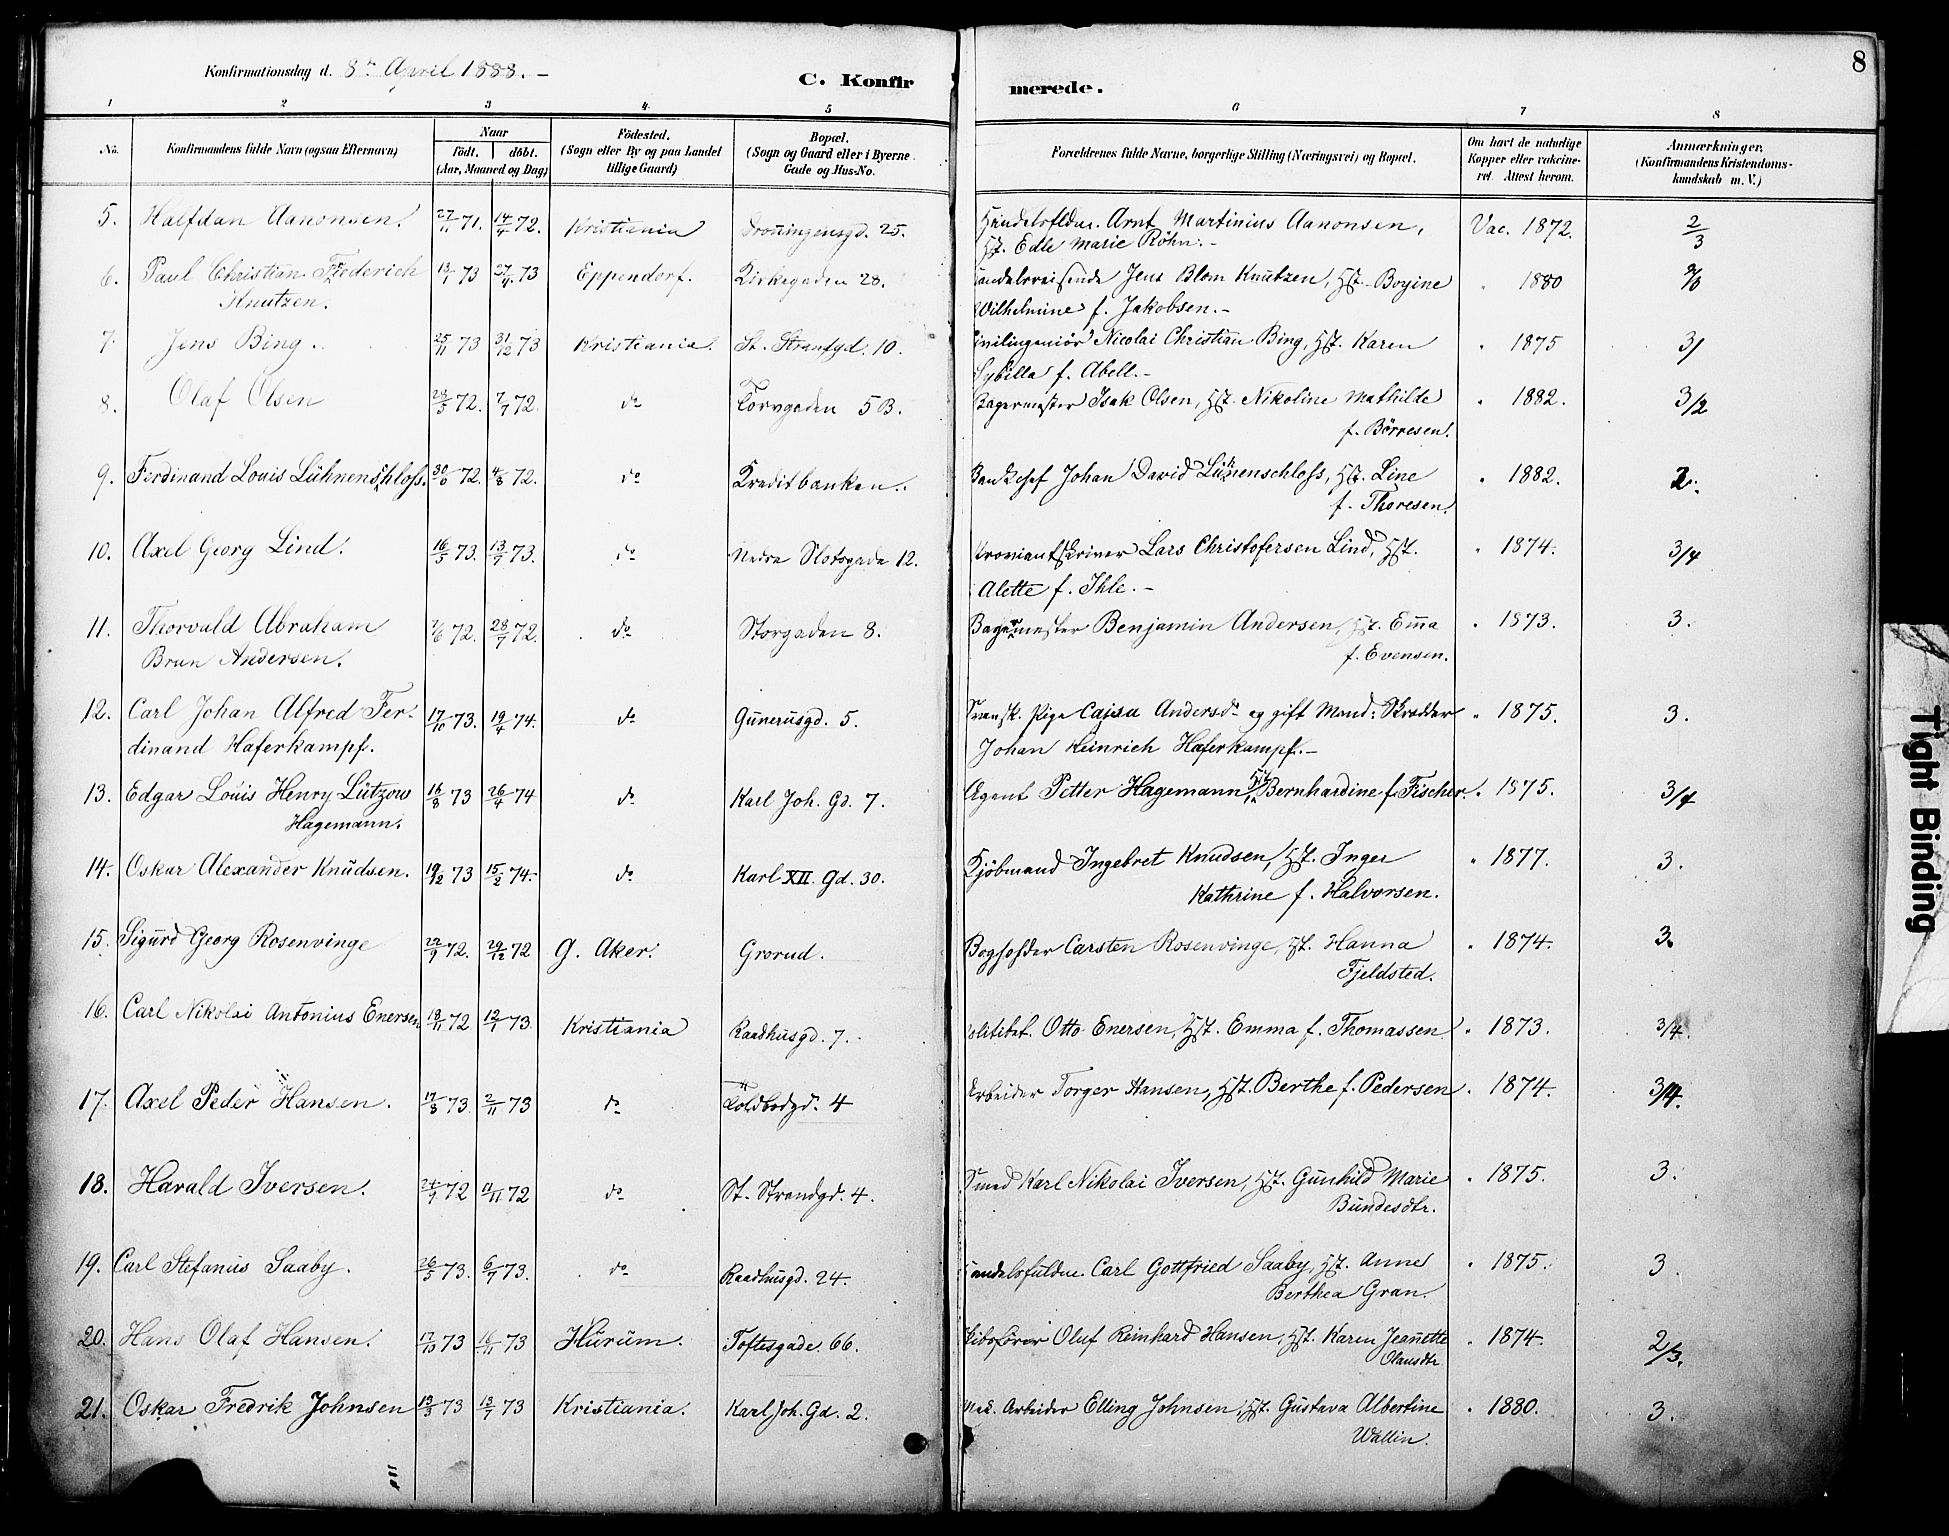 8
Konfirmationsdag d. 8de April 1888. –
C. Konfirmerede.
1 2 3 4 5 6 7 8
No. Konfirmandens fulde Navn (ogsaa Efternavn) Naar födt. döbt. (Aar, Maaned og Dag) Födested. (Sogn eller By og paa Landet tillige Gaard) Bopæl. (Sogn og Gaard eller i Byerne Gade og Hus-No. Forældrenes fulde Navne, borgerlige Stilling (Næringsvei) og Bopæl. Om havt de naturlige Kopper eller vakcineret. Attest herom. Anmærkninger. (Konfirmandens Kristendomskundskab m. V.)
5. Halfdan Aanonsen. 27/11 71. 14/4 72. Kristiania Dronningensgd. 25. Arnt Martinius Aanonsen, Hst. Edle Marie Röhn. – Vac. 1872. 2/3
6. Paul Christian Frederich Knutzen. 73 73 Eppendorf. Kirkegaden 28. Handelsreisende Jens Blom Knutzen, Hst. Boyine Wilhelmine f. Jakobsen. – " 1880
7. Jens Bing. 25/11 73 31/12 73 Kristiania. St. Strandgd. 10. Civilingeniör Nicolai Christian Bing, Hst. Karen Sybilla f. Abell. – " 1875 3/
8. Olaf Olsen 28/5 72. 7/7 72. do Torvgaden 5 B. Bagermester Isak Olsen, Hst. Nikoline Mathilde f. Börresen. " 1882. 3/2
9. Ferdinand Louis Lühnenschloss. 30/6 72. 4/8 72. do Kreditbanken. Bankchef Johan David Lühnenschloss, Hst. Line f. Thoresen. " 1882. 2.
10. Axel Georg Lind. 16/5 73. 13/7 73. do Nedre Slotsgade 12. Proviantskriver Lars Christofersen Lind, Hst. Alette f. Ihle. – " 1874. 3/4
11. Thorvald Abraham Brun Andersen. 7/6 72. 28/7 72. do Storgaden 8. Bagermester Benjamin Andersen, Hst. Emma f. Evensen. " 1873. 3.
12. Carl Johan Alfred Ferdinand Haferkampf. 17/10 73. 19/4 74. do Gunerusgd. 5. Svensk. Pige Cajsa Andersd. og gift Mand: Skrædder Johan Heinrich Haferkampf. – " 1875. 3.
13. Edgar Louis Henry Lützow Hagemann. 16/8 73 26/4 74 do Karl Joh. Gd. 7. Agent Petter Hagemann Hst. Bernhardine f. Fischer. " 1875. 3/4
14. Oskar Alexander Knudsen. 19/12 73 15/2 74. do Karl XII. Gd. 30. Kjöbmand Ingebret Knudsen, Hst. Inger Kathrine f. Halvorsen. " 1877. 3.
15. Sigurd Georg Rosenvinge 22/9 72. 29/12 72 G. Aker. Grorud. Bogholder Carsten Rosenvinge, Hst. Hanna Fjeldsted. " 1874. 3.
16. Carl Nikolai Antonius Enersen 18/11 72 12/1 73. Kristiania Raadhusgd. 7. Politibet. Otto Enersen, Hst. Emma f. Thomassen " 1873. 3/4.
17. Axel Peder Hansen. 17/8 73. 2/11 73 do Toldbodgd. 4 Arbeider Torger Hansen, Hst. Berthe f. Pedersen " 1874. 3/4.
18. Harald Iversen. 72 72 do St. Strandgd. 4. Smed Karl Nikolai Iversen, Hst. Gunhild Marie Bundesdtr. " 1875. 3.
19. Carl Stefanus Saaby. 26/5 73. 6/7 73. do Raadhusgd. 24. Handelsfuldm. Carl Gottfried Saaby, Hst. Anne Berthea Gran. " 1875. 3.
20. Hans Olaf Hansen. 17/10 73 16/11 73 Hurum. Toftesgade 66. Skibsförer Oluf Reinhard Hansen, Hst. Karen Jeanette Olausdtr. " 1874. 2/3.
21. Oskar Fredrik Johnsen 73 13/7 73 Kristiania. Karl Joh. Gd. 2. Arbeider Elling Johnsen, Hst. Gustava Albertine Wallin. " 1880. 3.
Tight Binding